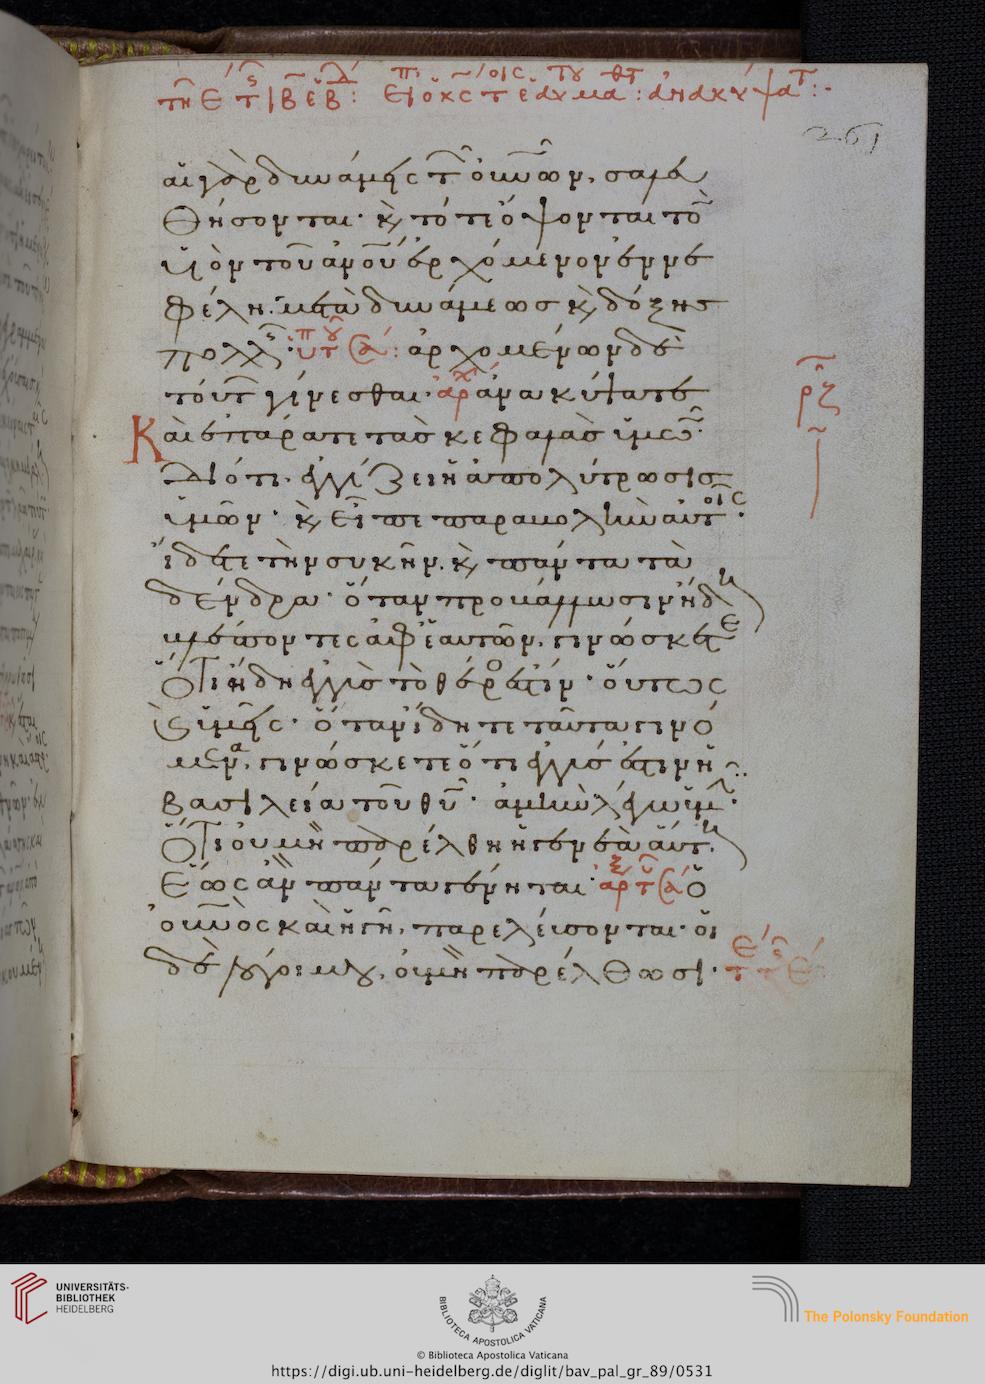 261
αἱ γὰρ δυνάμεις τῶν οὐνῶν, σαλευ
θήσονται· καὶ τότε ὄψονται τὸν
υἱὸν τοῦ ἀνου ἐρχόμενον ἐν νε
φέλη· μετὰ δυνάμεως καὶ δόξης
πολλῆς· ἀρχομένων δὲ
τούτων γίνεσθαι· ἀρχ ἀνακύψατε
Καὶ ἐπάρατε τὰς κεφαλὰς ὑμῶν·
Διότι ἐγγίζει ἡ ἀπολύτρωσις
ὑμῶν· καὶ εἶπε παραβολὴν αὐτοῖς·
ἴδετε τὴν συκῆν καὶ πάντα τὰ
δένδρα· ὅταν προβάλλωσιν ἤδη
βλέποντες ἀφ' ἑαυτῶν, γινώσκετε
Ὅτι ἤδη ἐγγὺς τὸ θέρος ἐστίν· οὕτως
καὶ ὑμεῖς· ὅταν ἴδητε ταῦτα γινό
μενα, γινώσκετε ὅτι ἐγγύς ἐστιν ἡ
βασιλεία τοῦ θυ· ἀμὴν λέγω ὑμῖν·
Ὅτι οὐ μὴ παρέλθη ἡ γενεὰ αὕτη,
Ἕως ἂν πάντα γένηται· ὁ
οὐνὸς καὶ ἡ γῆ, παρελεύσονται· οἱ
δὲ λόγοι μου, οὐ μὴ παρέλθωσι·
ρζ
UNIVERSITÄTS-
BIBLIOTHEK
HEIDELBERG
BIBLIOTECA APOSTOLICA VATICANA
© Biblioteca Apostolica Vaticana
The Polonsky Foundation
https://digi.ub.uni-heidelberg.de/diglit/bav_pal_gr_89/0531